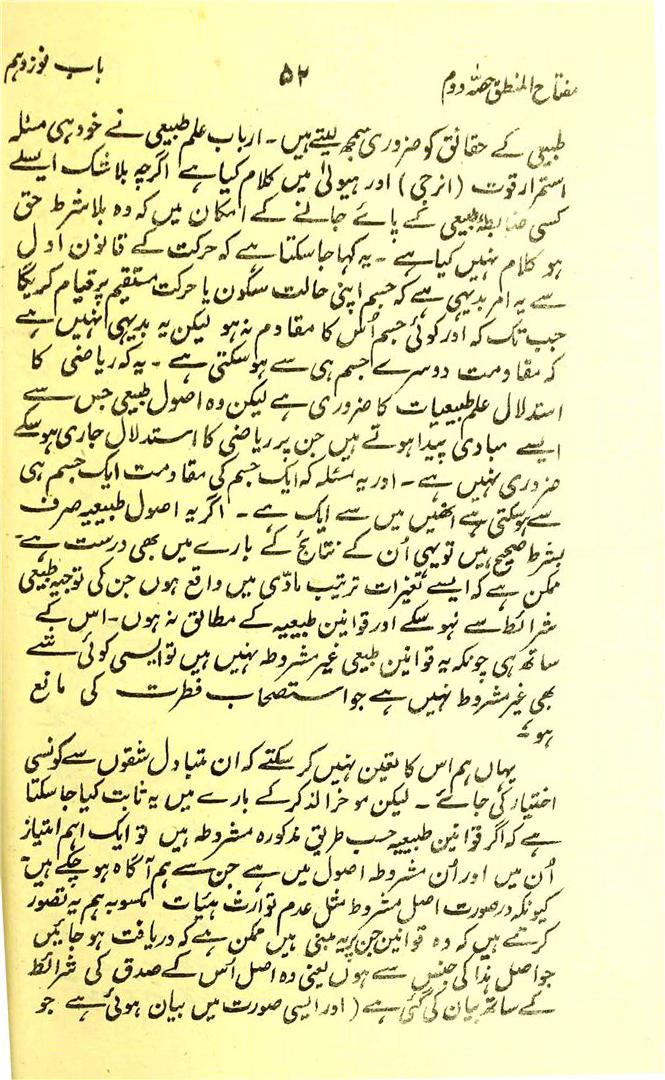 باب نوزدہم
۵۲
مفتاح المنطق حصّہ دوم
طبیعی کے حقائق کو ضروری سمجھ لیتے ہیں۔ ارباب علم طبیعی نے خود ہی مسئلہ
استمرار قوت (انرجی) اور ہیولیٰ میں کلام کیا ہے اگرچہ بلا شک ایسے
کسی ضابطۂ طبیعی کے پائے جانے کے امکان میں کہ وہ بلا شرط حق
ہو کلام نہیں کیا ہے۔ یہ کہا جا سکتا ہے کہ حرکت کے قانون اول
سے یہ امر بدیہی ہے کہ جسم اپنی حالت سکون یا حرکت مستقیم پر قیام کریگا
جب تک کہ اور کوئی جسم اُس کا مقاوم نہ ہو لیکن یہ بدیہی نہیں ہے
کہ مقاومت دوسرے جسم ہی سے ہو سکتی ہے۔ یہ کہ ریاضی کا
استدلال علم طبیعیات کا ضروری ہے لیکن وہ اصول طبیعی جس سے
ایسے مبادی پیدا ہوتے ہیں جن پر ریاضی کا استدلال جاری ہو سکے
ضروری نہیں ہے۔ اور یہ مسئلہ کہ ایک جسم کی مقاومت ایک جسم ہی
سے ہو سکتی ہے انھیں میں سے ایک ہے۔ اگر یہ اصول طبیعیہ صرف
بشرط صحیح ہیں تو یہی اُن کے نتائج کے بارے میں بھی درست ہے۔
ممکن ہے کہ ایسے تغیرات ترتیب مادّی میں واقع ہوں جن کی توجیہ طبیعی
شرائط سے نہو سکے اور قوانین طبیعیہ کے مطابق نہ ہوں۔ اس کے
ساتھ ہی چونکہ یہ قوانین طبیعی غیر مشروطہ نہیں ہیں تو ایسی کوئی شے
بھی غیر مشروط نہیں ہے جو استصحاب فطرت کی مانع
ہو۔
یہاں ہم اس کا تعین نہیں کر سکتے کہ ان متبادل شقوں سے کونسی
اختیار کی جائے۔ لیکن موخر الذکر کے بارے میں یہ ثابت کیا جا سکتا
ہے کہ اگر قوانین طبیعیہ حسب طریق مذکورہ مشروطہ ہیں تو ایک اہم امتیاز
اُن میں اور اُن مشروطہ اصول میں ہے جن سے ہم آگاہ ہو چکے ہیں۔
کیونکہ در صورت اصل مشروط مثل عدم توارث ہئیات مکسوبہ ہم یہ تصور
کرتے ہیں کہ وہ قوانین جن پر یہ مبنی ہیں ممکن ہے کہ دریافت ہو جائیں
جو اصل ہذا کی جنس سے ہوں یعنی وہ اصل اُس کے صدق کی شرائط
کے ساتھ بیان کی گئی ہے (اور ایسی صورت میں بیان ہوئی ہے جو